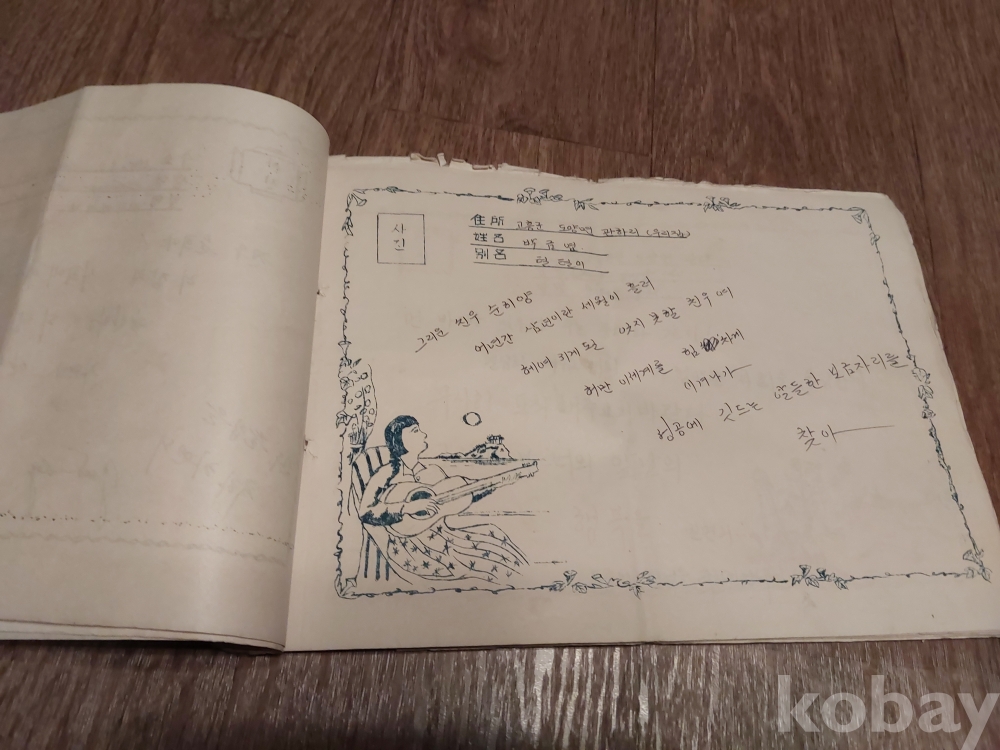 사진
住所 고흥군 도양면 관하리 (우리집)
姓名 박
別名 털털이
그리운 친우 순희양
어년간 삼년이란 세월이 흘러
헤여지게 된 잊지 못할 친우여
허만 이세계를 힘 차게
이겨나가
성공에 깃드는 알뜰한 보금자리를
찾아
kobay